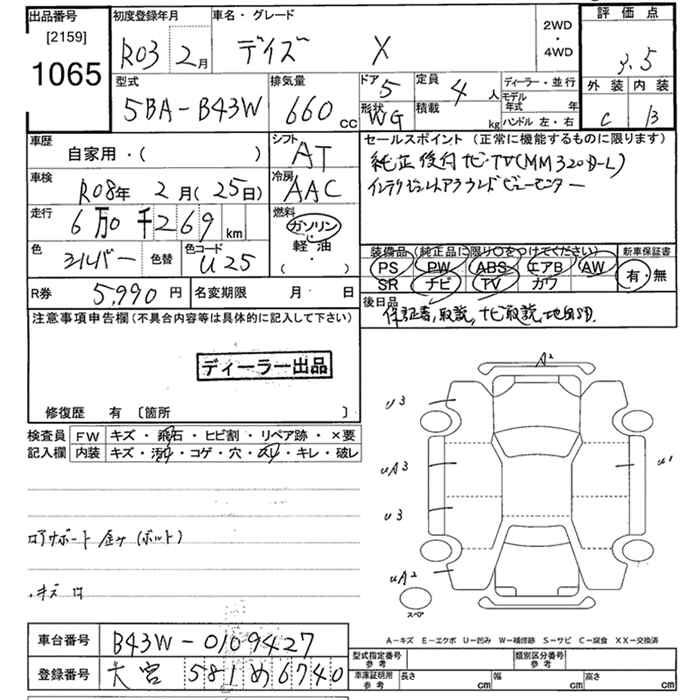 出品番号 [2159] 1065
初度登録年月 R03 2月
車名・グレード デイズ X
2WD・4WD
評価点 3.5
外装 内装
C B
型式 5BA-B43W
排気量 660 CC
ドア 5 定員 4 人
形状 WG 積載 kg
ディーラー・並行
モデル年式 年
ハンドル 左・右
車歴 自家用・( )
シフト AT
車検 R08年 2月(25日)
冷房 AAC
走行 6万0千269 km
燃料 ガソリン・軽油・( )
色 シルバー 色替 色コード U25
R券 5,990円 名変期限 月 日
セールスポイント (正常に機能するものに限ります)
純正後付ナビ・TV(MM320D-L)
インテリジェントアラウンドビューモニター
装備品(純正品に限り○をつけてください)
PS PW ABS エアB AW
SR ナビ TV カワ
新車保証書 有・無
後日品 保証書,取説,ナビ取説,地図SD.
注意事項申告欄(不具合内容等は具体的に記入して下さい)
ディーラー出品
修復歴 有 〔箇所 〕
検査員記入欄
FW キズ・飛石・ヒビ割・リペア跡・×要
内装 キズ・汚れ・コゲ・穴・スレ・キレ・破レ
ロアサポート (ボルト)
キズ
A²
U3
UA3
U3
UA2
U¹
スペア
A-キズ E-エクボ U-凹み W-補修跡 S-サビ C-腐食 XX-交換済
車台番号 B43W-0109427
登録番号 大宮 581め6740
型式指定番号 参考
類別区分番号 参考
車庫証明用 参考 長さ cm 幅 cm 高さ cm